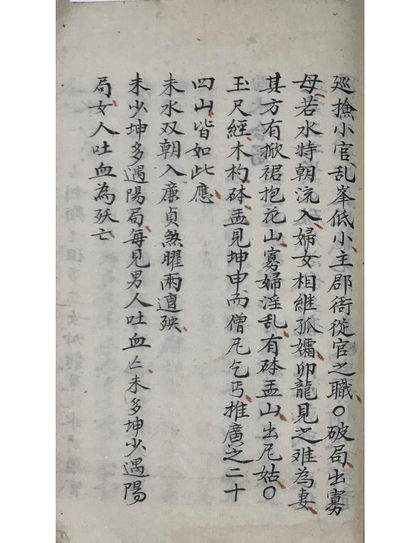 廵撿小官乱峯低小主郡衙從官之職〇破局出寡
母若水特朝流入婦女相継孤孀卯龍見之难為妻
其方有掀裙抱花山寡婦淫乱有砵盂山出尼姑〇
玉尺經木杓砵盂見坤申而僧尼乞丐推廣之二十
四山皆如此應
未水双朝入廉貞煞曜兩邅殃
未少坤多遇陽局每見男人吐血亡未多坤少遇陽
局女人吐血為殀亡